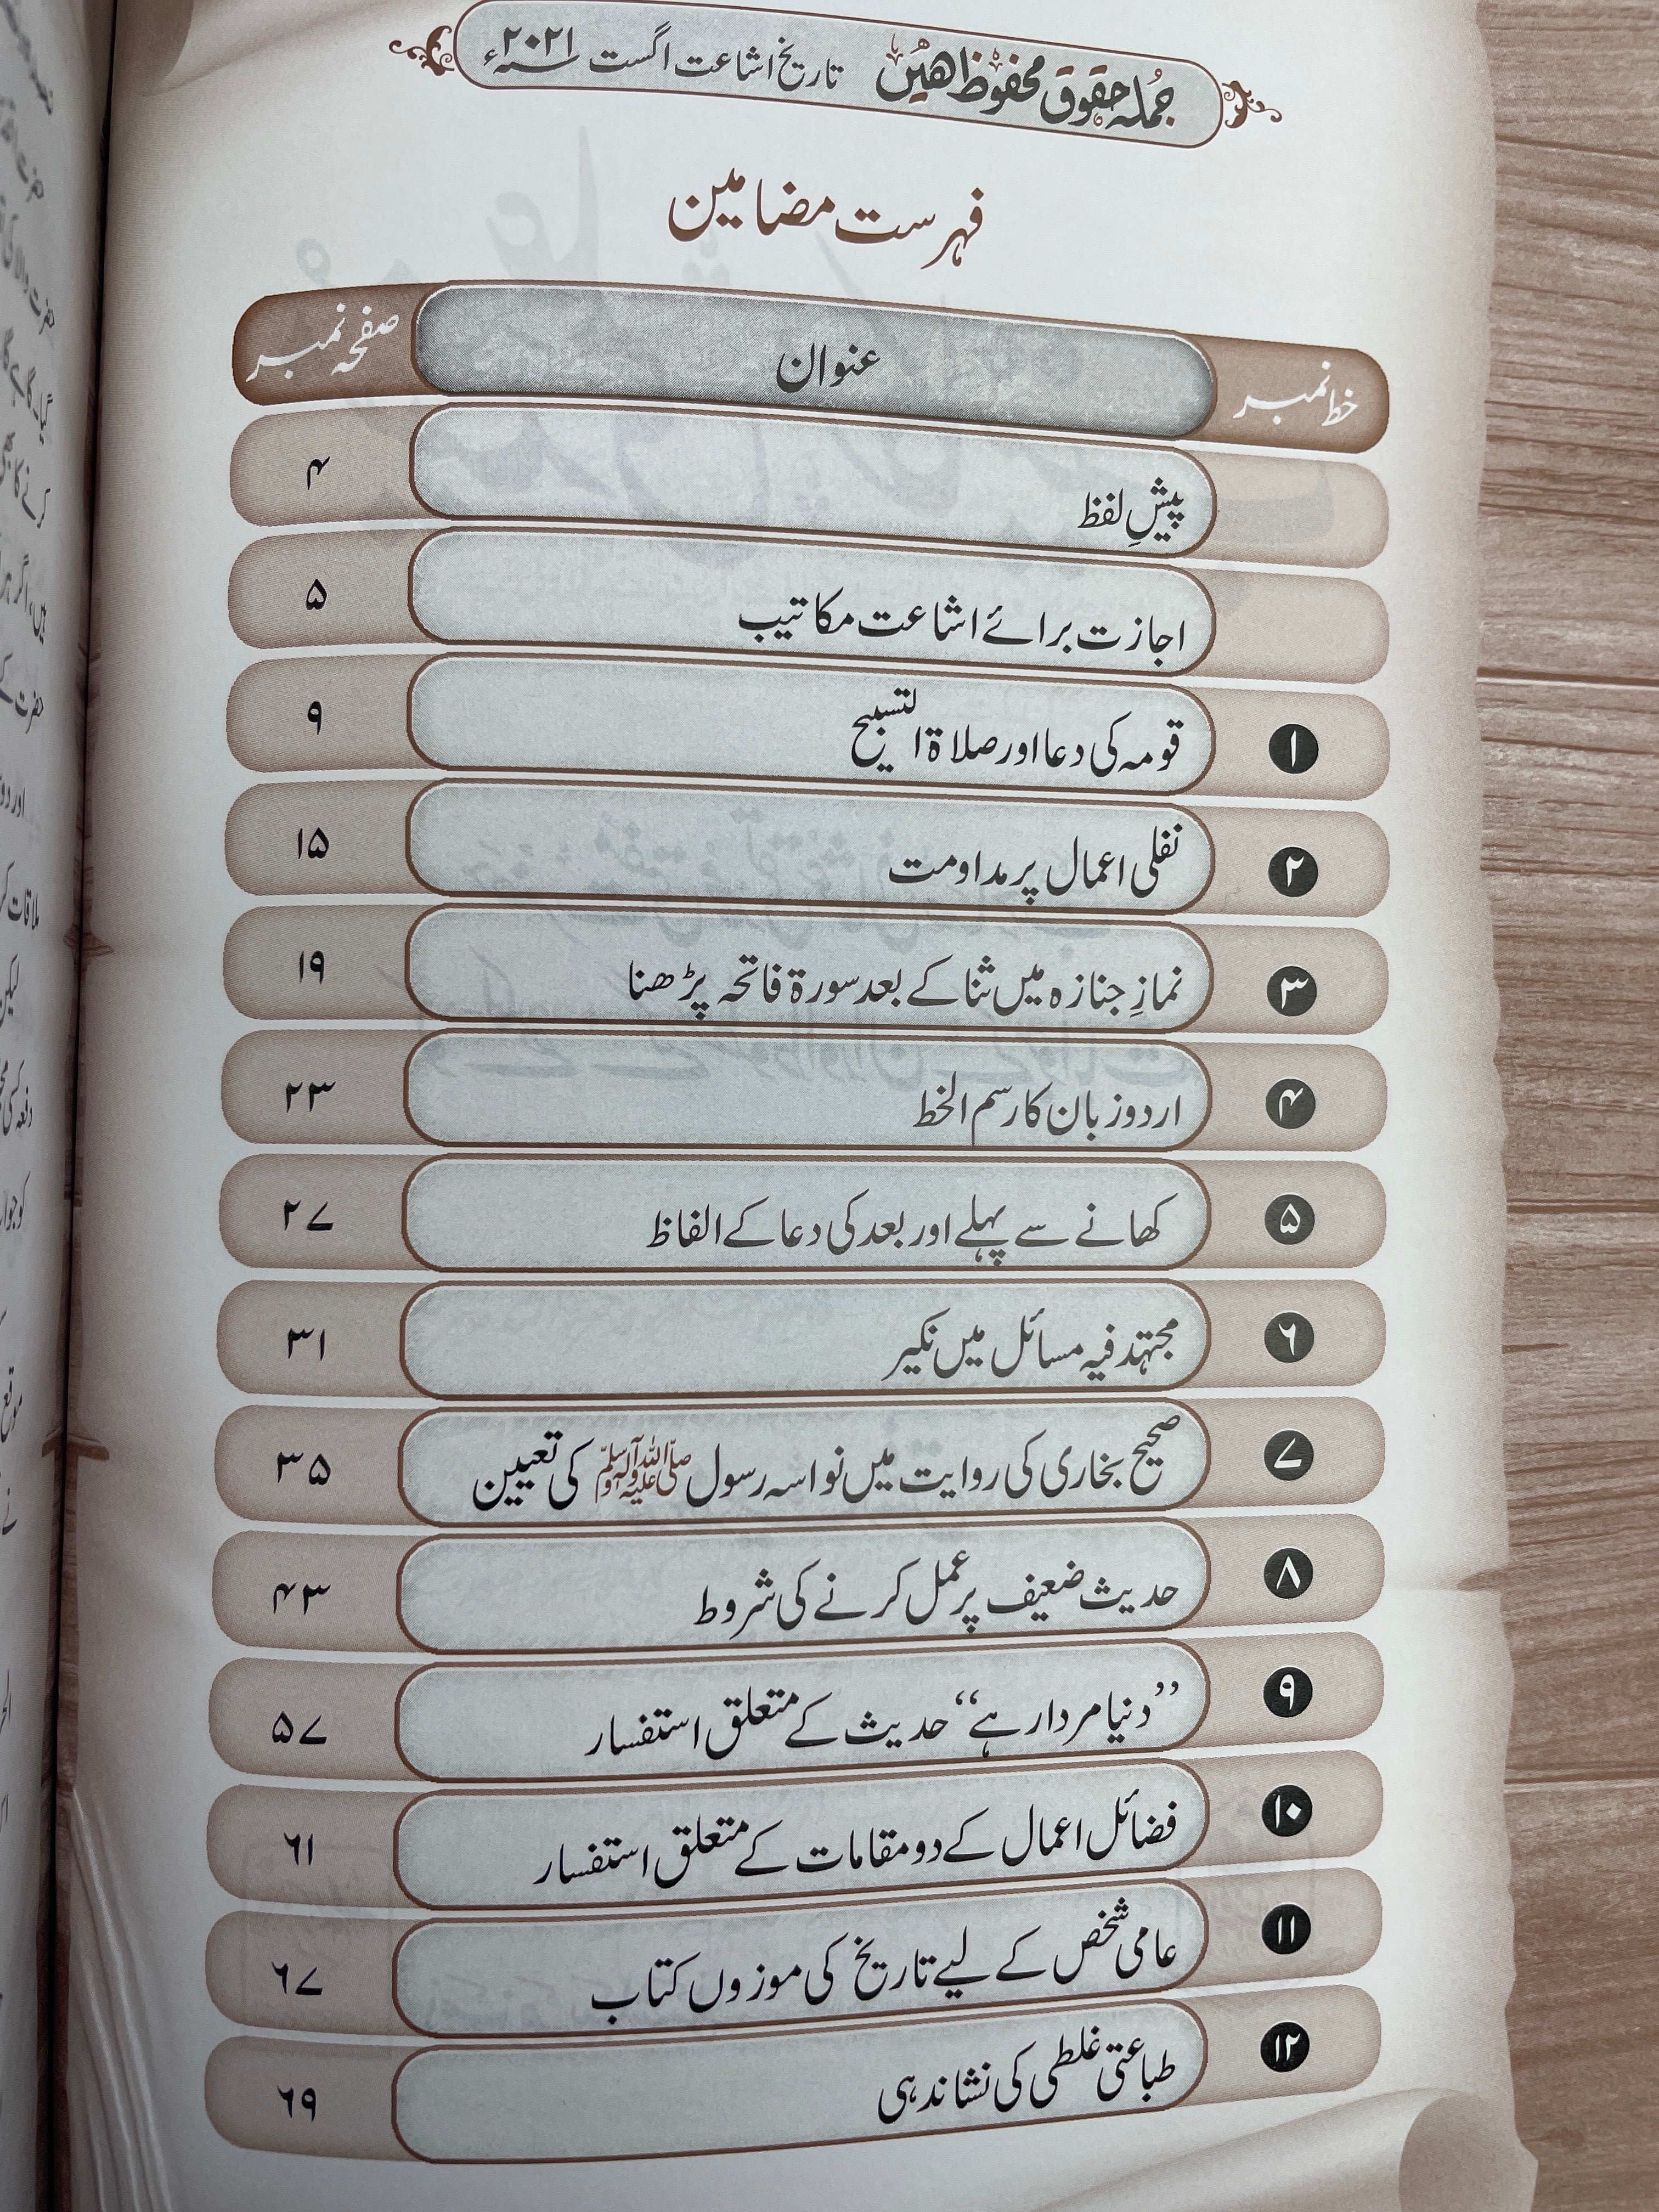 جملہ حقوق محفوظ ھیں تاریخ اشاعت اگست ۲۰۲۱ء
فہرست مضامین
خط نمبر عنوان صفحہ نمبر
پیشِ لفظ ۴
اجازت برائے اشاعت مکاتیب ۵
۱ قومہ کی دعا اور صلاۃ التسبیح ۹
۲ نفلی اعمال پر مداومت ۱۵
۳ نمازِ جنازہ میں ثنا کے بعد سورۃ فاتحہ پڑھنا ۱۹
۴ اردو زبان کا رسم الخط ۲۳
۵ کھانے سے پہلے اور بعد کی دعا کے الفاظ ۲۷
۶ مجتہد فیہ مسائل میں نکیر ۳۱
۷ صحیح بخاری کی روایت میں نواسہ رسول ﷺ کی تعیین ۳۵
۸ حدیث ضعیف پر عمل کرنے کی شروط ۴۳
۹ ”دنیا مردار ہے“ حدیث کے متعلق استفسار ۵۷
۱۰ فضائل اعمال کے دو مقامات کے متعلق استفسار ۶۱
۱۱ عامی شخص کے لیے تاریخ کی موزوں کتاب ۶۷
۱۲ طباعتی غلطی کی نشاندہی ۶۹